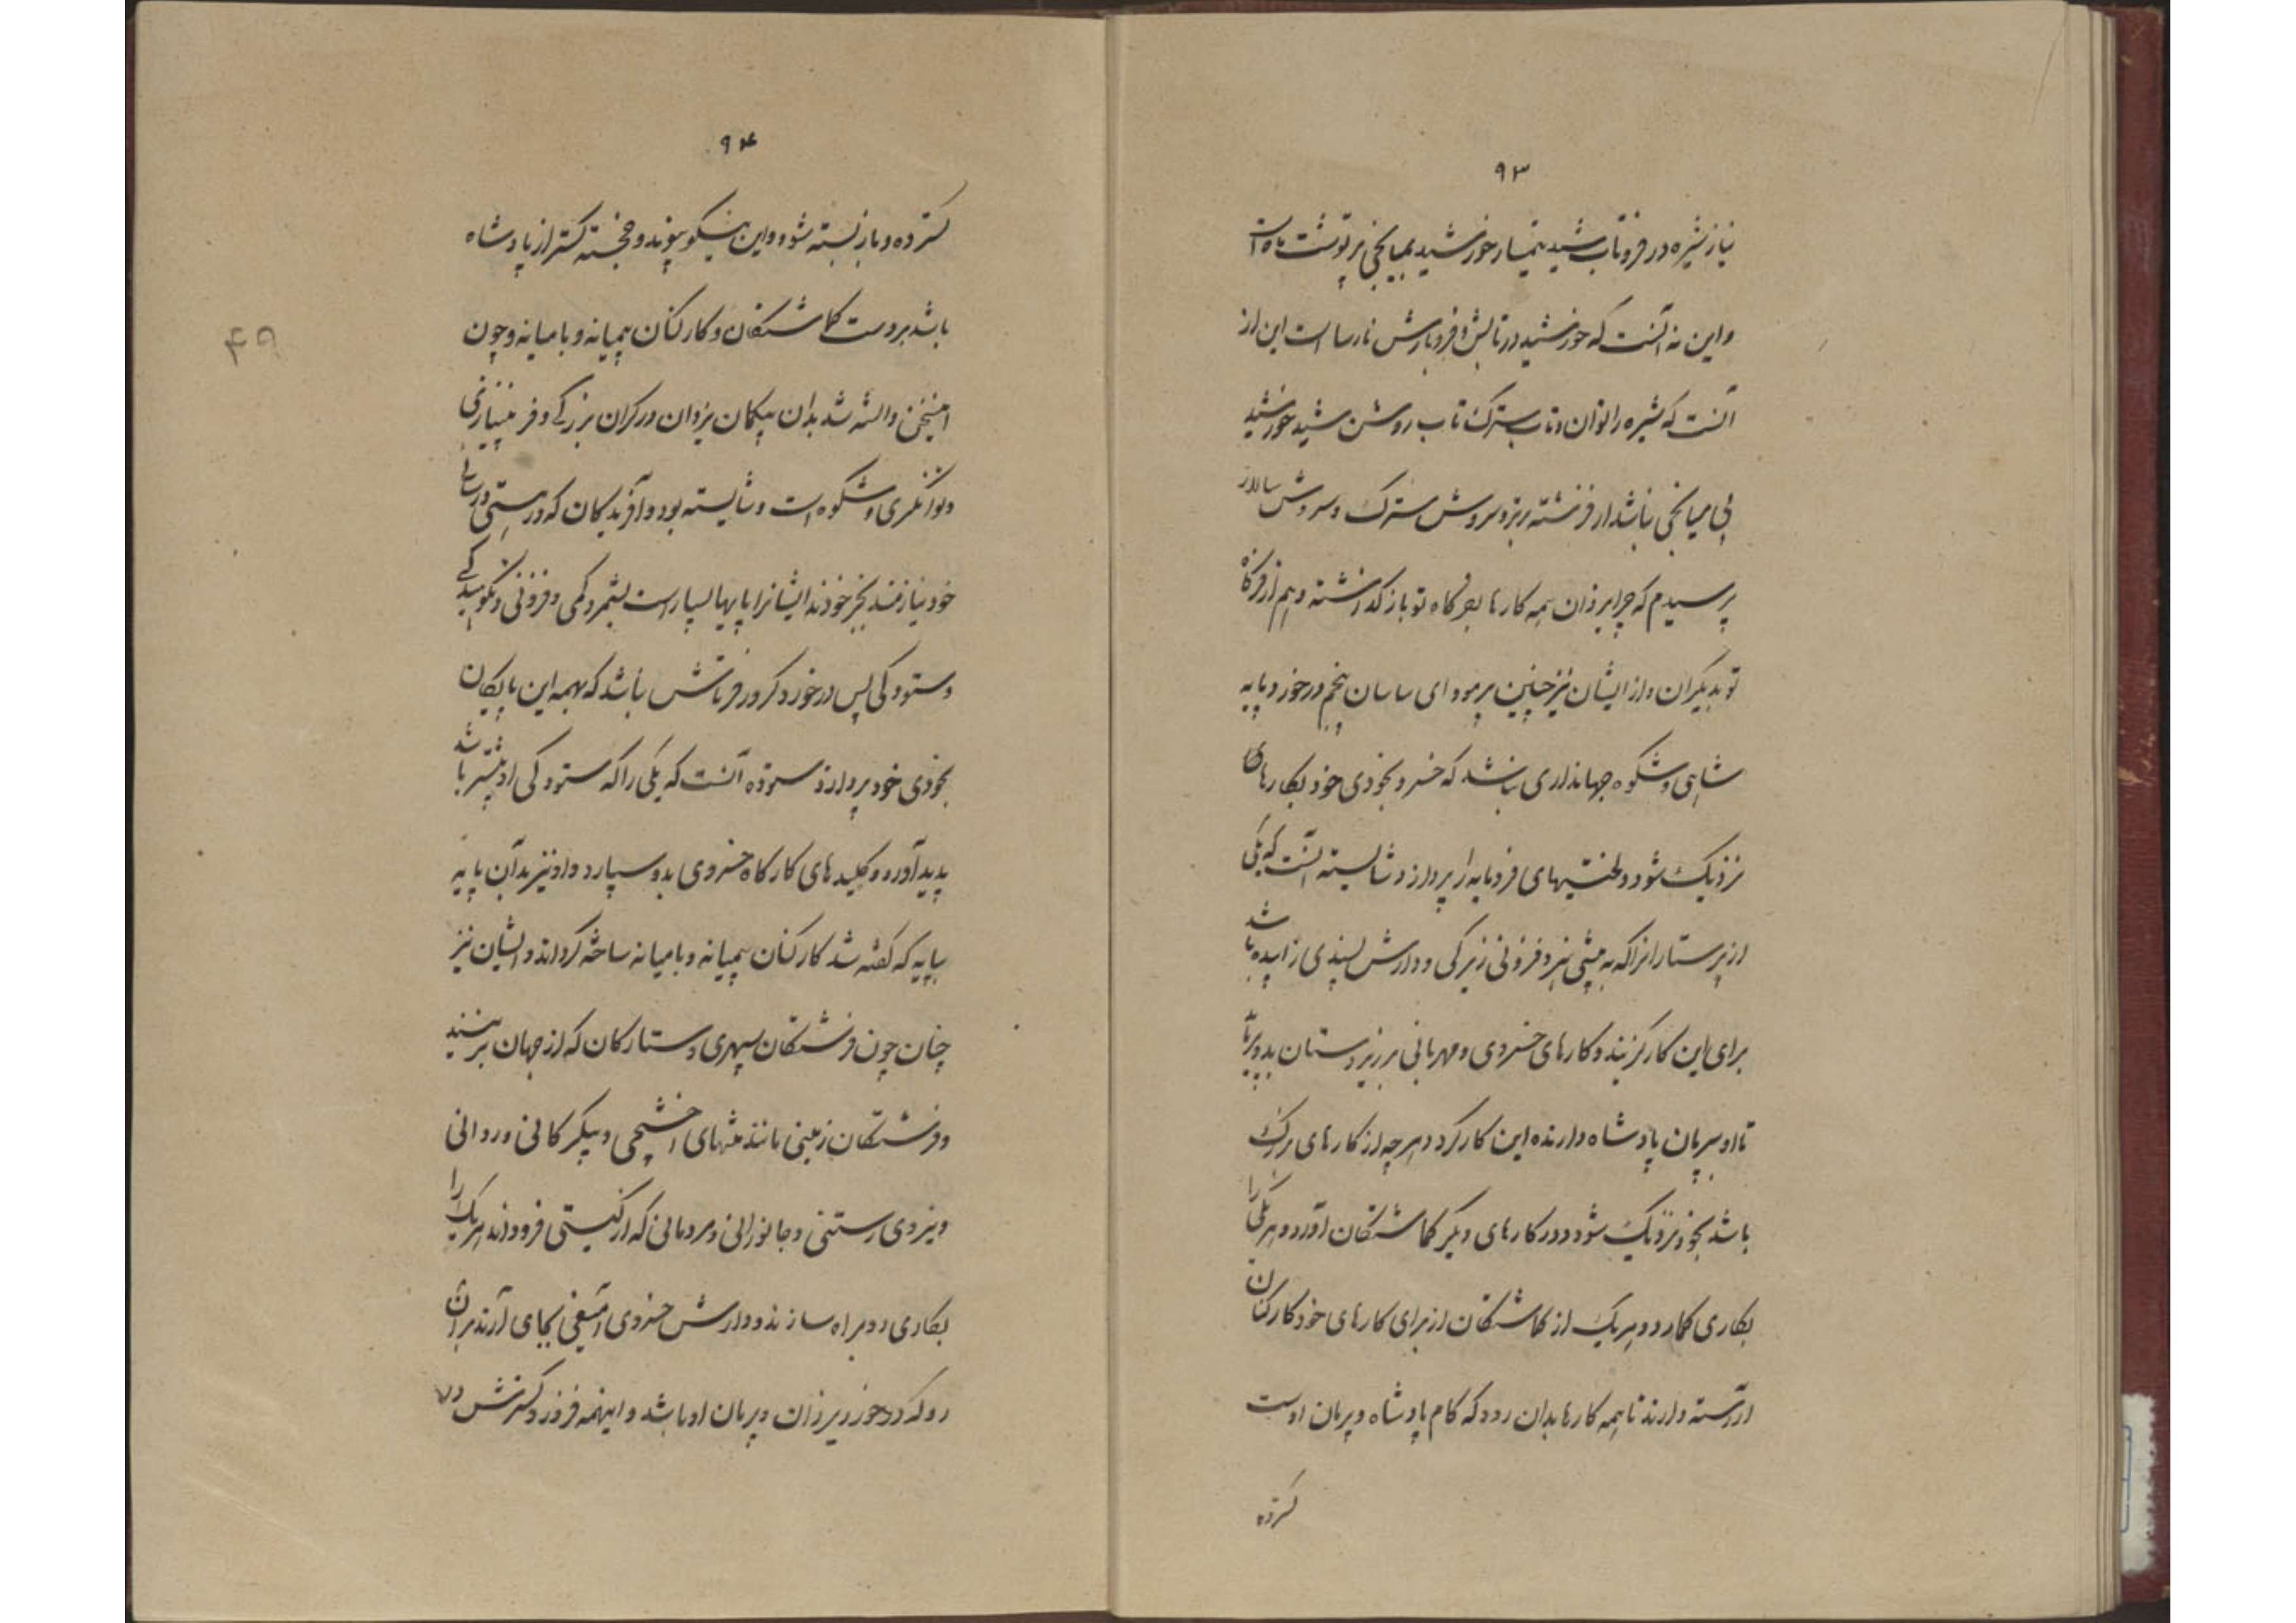 ۹۳
نیاز شیره در فروتاب شید بمیار خورشید بمیانجی پرتوشت ماه است
و این نه آنست که خورشید در تابش و فروبارش نارسا است این از
آنست که شیره را توان و تاب سترک تاب روشن شید خورشید
بی میانجی نباشد از فرشته ریزه سروش سترک و سروش سالار
پرسیدم که چرا یزدان همه کارها بفرگاه تو باز گذاشته و هم از فرگاه
تو بدیگران و از ایشان نیز چنین پرمود ای ساسان پنجم درخور و پایه
شاهی و شکوه جهانداری نباشد که خسرو بخودی خود بکارهای
نزدیک شود و لختیهای فرومایه را پردازد و شایسته آنست که یکی
از پرستارانرا که به بیشی هنر و فزونی زیرکی و دادرش پسندی زاییده باشد
برای این کار گزیند و کارهای خسروی و مهربانی بر زیردستان بدو
تا او بپرمان پادشاه دارنده این کار کرد و هرچه از کارهای بزرگ
باشد بخود نزدیک شود و در کارهای دیگر گماشتگان آورد و هر یکی را
بکاری گمارد و هر یک از گماشتگان از برای کارهای خود کارکنان
آراسته دارند تا همه کارها بدان رود که کام پادشاه و پرمان اوست
کرده
۹۴
کرده و باز بسته شود و این نیکو پیوند و خجسته گستر از پادشاه
باشد بر دست گماشتگان و کارکنان بمیانه و بامیانه و چون
اینچنین دانسته شد بدان بیگمان یزدان در کران بزرگی و فر بی‌نیازی
و توانگری و شکوه است و شایسته بود و آفریدگان که در هستی و رسائی
خود نیازمند بجز خودند ایشانرا پایها بسیار است بشمر و کمی و فزونی و نکوهیدگی
و ستودگی پس درخورد کروفر تاشش نباشد که بهمه این پایگان
بخودی خود پردازد ستوده آنست که یکی را که ستودگی او بیشتر باشد
پدید آورد و کلیدهای کارگاه خسروی بدو سپارد و او نیز بدآن پایه
بپایه که گفته شد کارکنان بمیانه و بامیانه ساخته گرداند و ایشان نیز
چنان چون فرشتگان سپهری و ستارگان که از جهان برینند
و فرشتگان زمینی مانند منشهای اخشیجی و پیکر کانی و روانی
و نیروی رستنی و جانورانی و مردمانی که از گیتی فرودند هر یک را
بکاری روبراه سازند و دادرش خسروی آمیغی بجای آرند بر آن
رو که درخور یزدان و پرمان او باشد و اینهمه فروز و گسترش در
۴۹